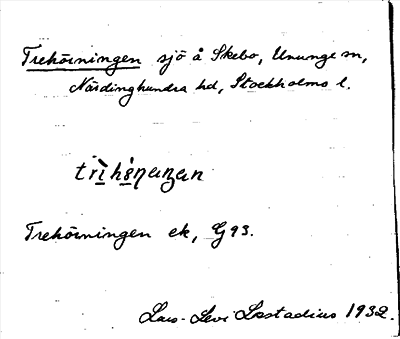 Trehörningen sjö å Skebo, Ununge sn,
Närdinghundra hd, Stockholms l.
Trehörningen ek, G93.
Lars-Levi Læstadius 1932.